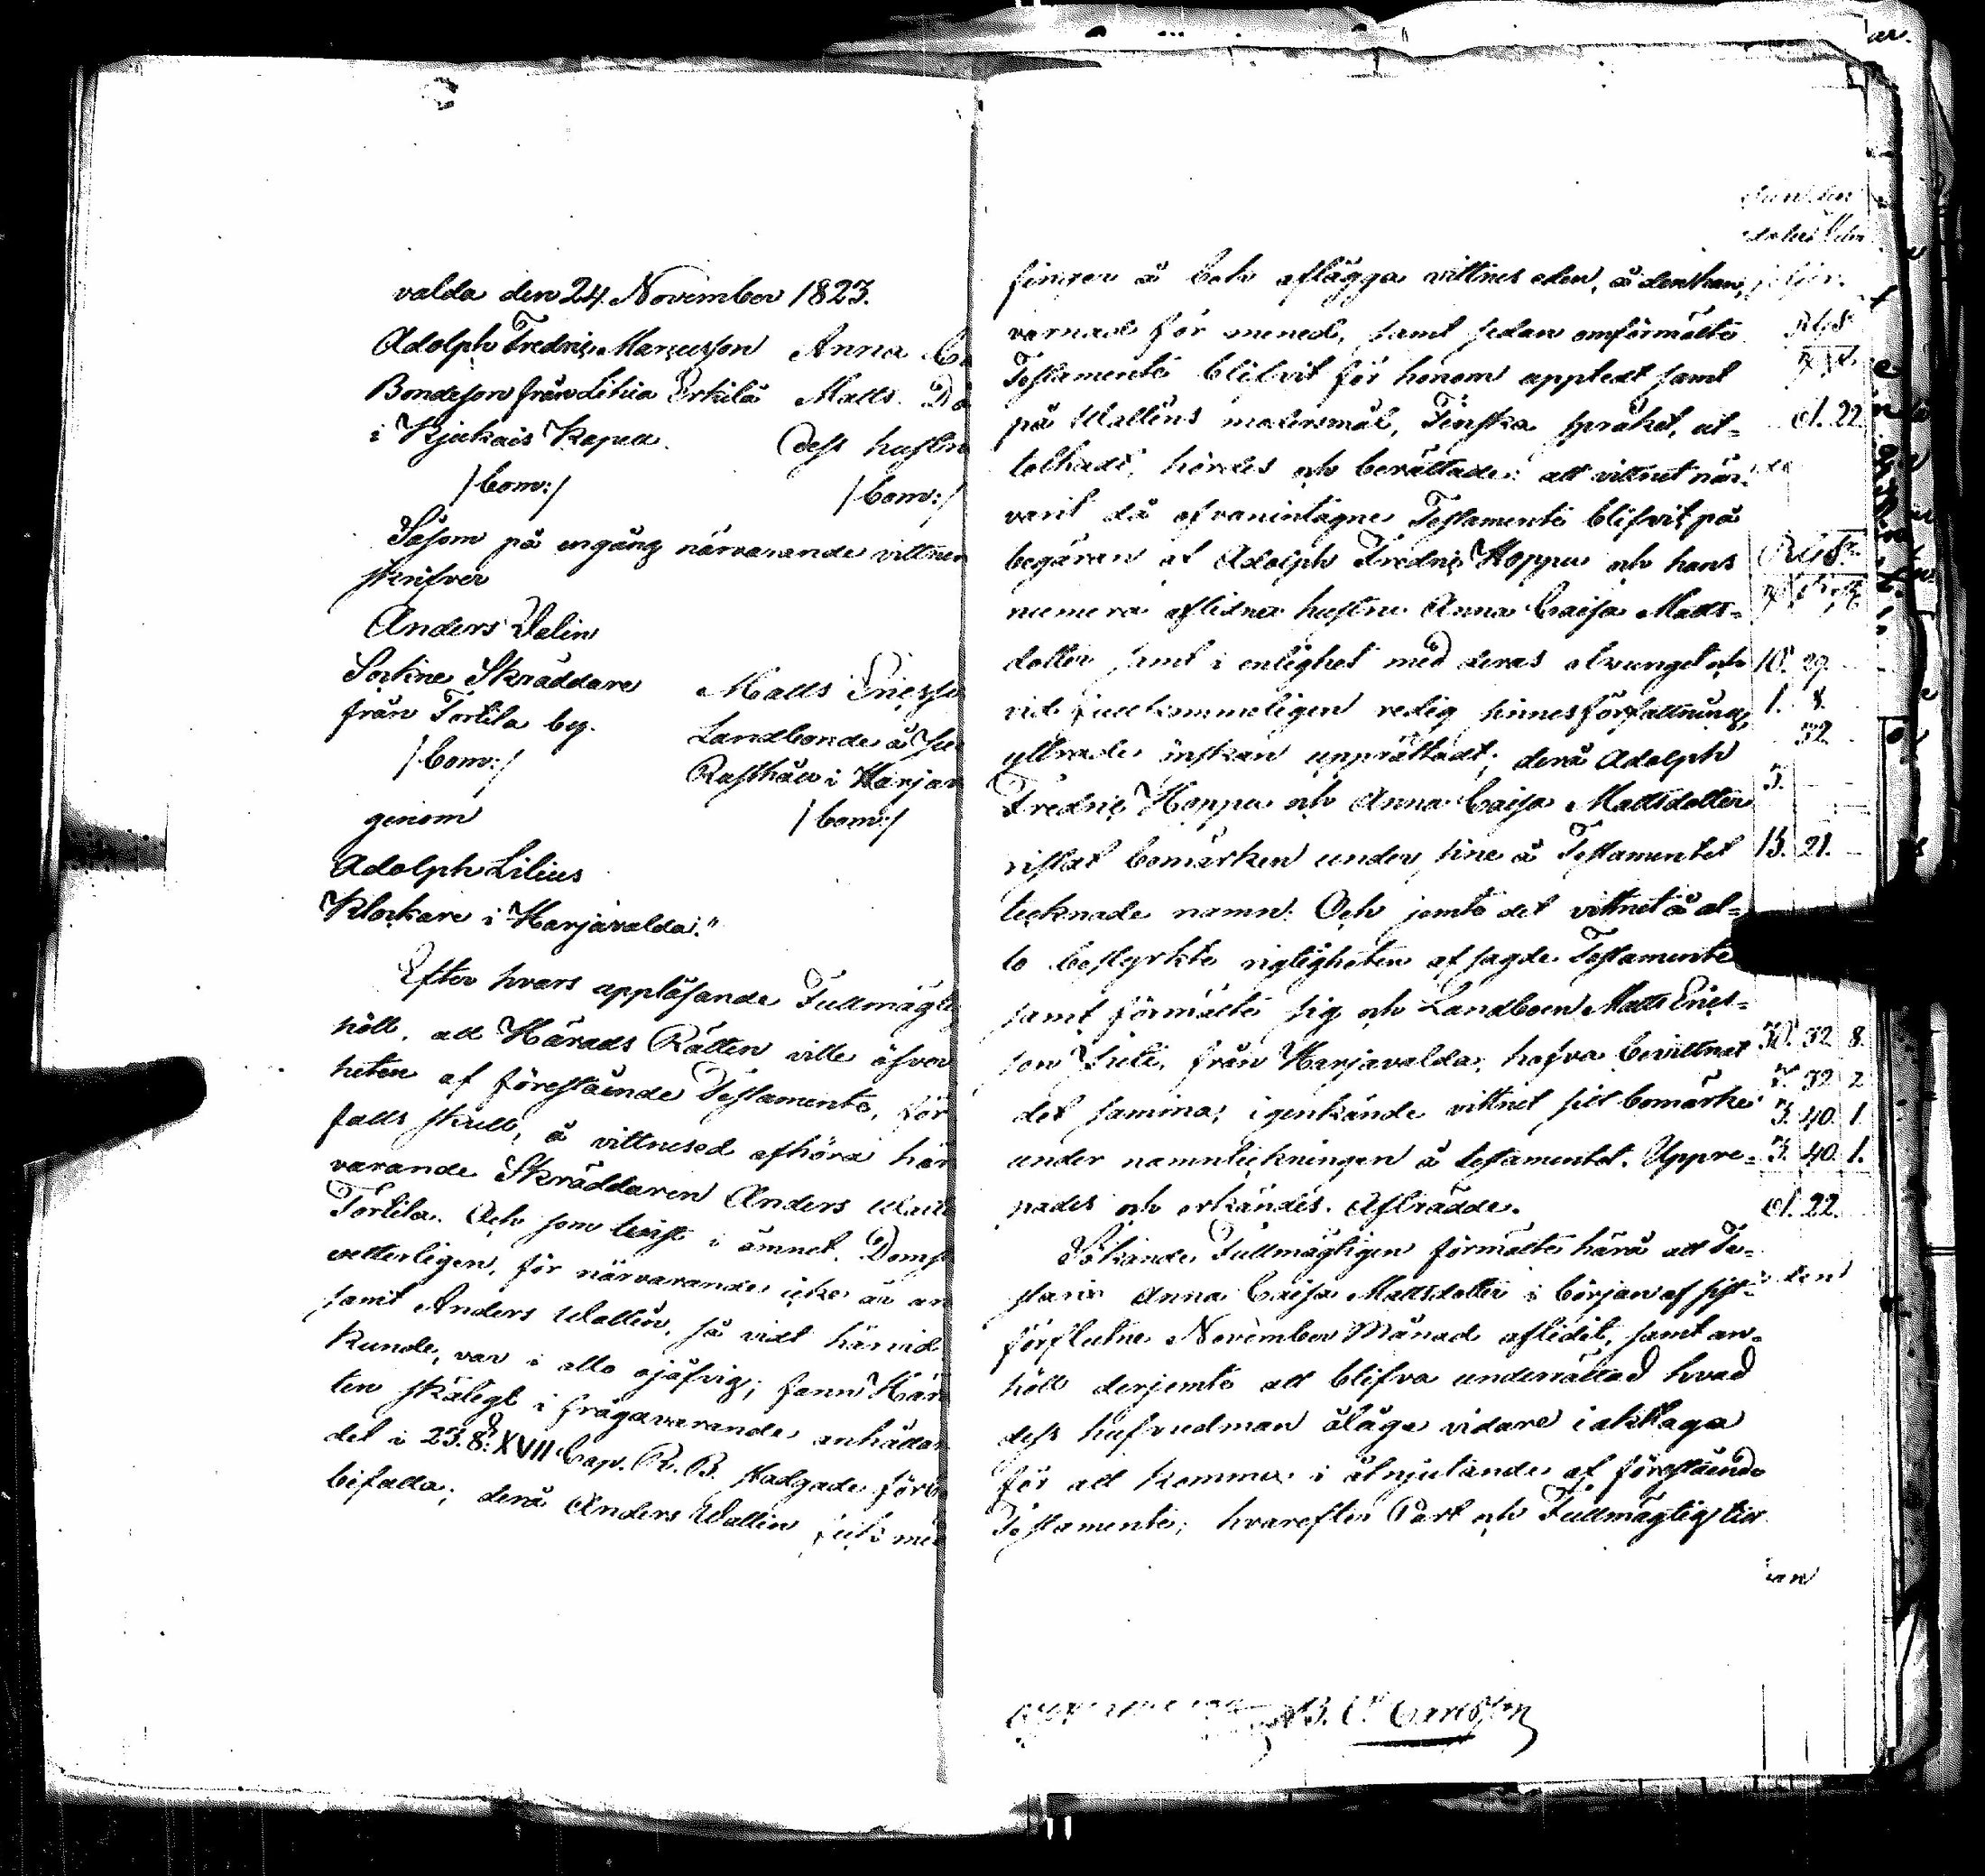 valda den 24 November 1823.
Adolph Fredric Marcusson Anna
Bondeson från Lihia Erkilä Matts
i Kjukais Kapell. Dess hustru
/bom:/ /bom:/
Såsom på engång närvarande vittnen
skrifver
Anders Valin
Sockne Skräddare Matts Ericsso
från Torttila by. Landbonde å
/bom:/ Rusthåll i Harjav
genom /bom:/
Adolph Lilius
Klockare i Harjavalda."
Efter hvars uppläsande Fullmägti
höll, att Härads Rätten ville öfver
heten af förestående Testamente, för
falls skull, å vittnesed afhöra här
varande Skräddaren Anders Wall
Torttila. Och som tvist i ämnet, Doms
vetterligen, för närvarande icke är an
samt Anders Wallin, så vidt härvid
kunde, var i allo ojäfvig; fann Här
ten skäligt i frågavarande anhålla
det i 23. §: XVII Cap. R. B. stadgade förb
bifalla; derå Anders Wallin fick me
finger å bok aflägga vittnes eden, å den han,
varnad för mened, samt sedan omförmälte
Testamente blifvit för honom uppläst samt
på Wallins modersmål, Finska språket, ut-
tolkadt, hördes och berättade: att vittnet när-
varit då ofvanintagne Testamente blifvit på
begäran af Adolph Fredric Hoppu och hans
numera aflidna hustru Anna Caisa Matts-
dotter samt i enlighet med deras otvunget och
vid fullkommeligen redig sinnesförfattning,
yttrade önskan upprättadt; derå Adolph
Fredric Hoppu och Anna Caisa Mattsdotter
ristat bomärken under sine å Testamentet
tecknade namn. Och jemte det vittnet å al-
lo bestyrkte rigtigheten af sagde Testamente
samt förmälte sig och Landboen Matts Erics-
son Suti, från Harjavalda, hafva bevittnat
det samma; igenkände vittnet sitt bomärke
under namnteckningen å testamentet. Uppre-
pades och erkändes. Afträdde.
Sökande Fullmägtigen förmälte härå att Te-
starix Anna Caisa Mattsdotter i början af sist-
förflutne November Månad aflidit, samt an-
höll derjemte att blifva underrättad hvad
dess hufvudman ålåge vidare iakttaga
för att komma i åtnjutande af förestående
Testamente; hvarefter Part och Fullmägtig till
10. 29.
1. 8.
32.
3.
15. 21.
30. 32. 8.
7. 32. 2
3. 40. 1.
3. 40. 1.
d. 22.